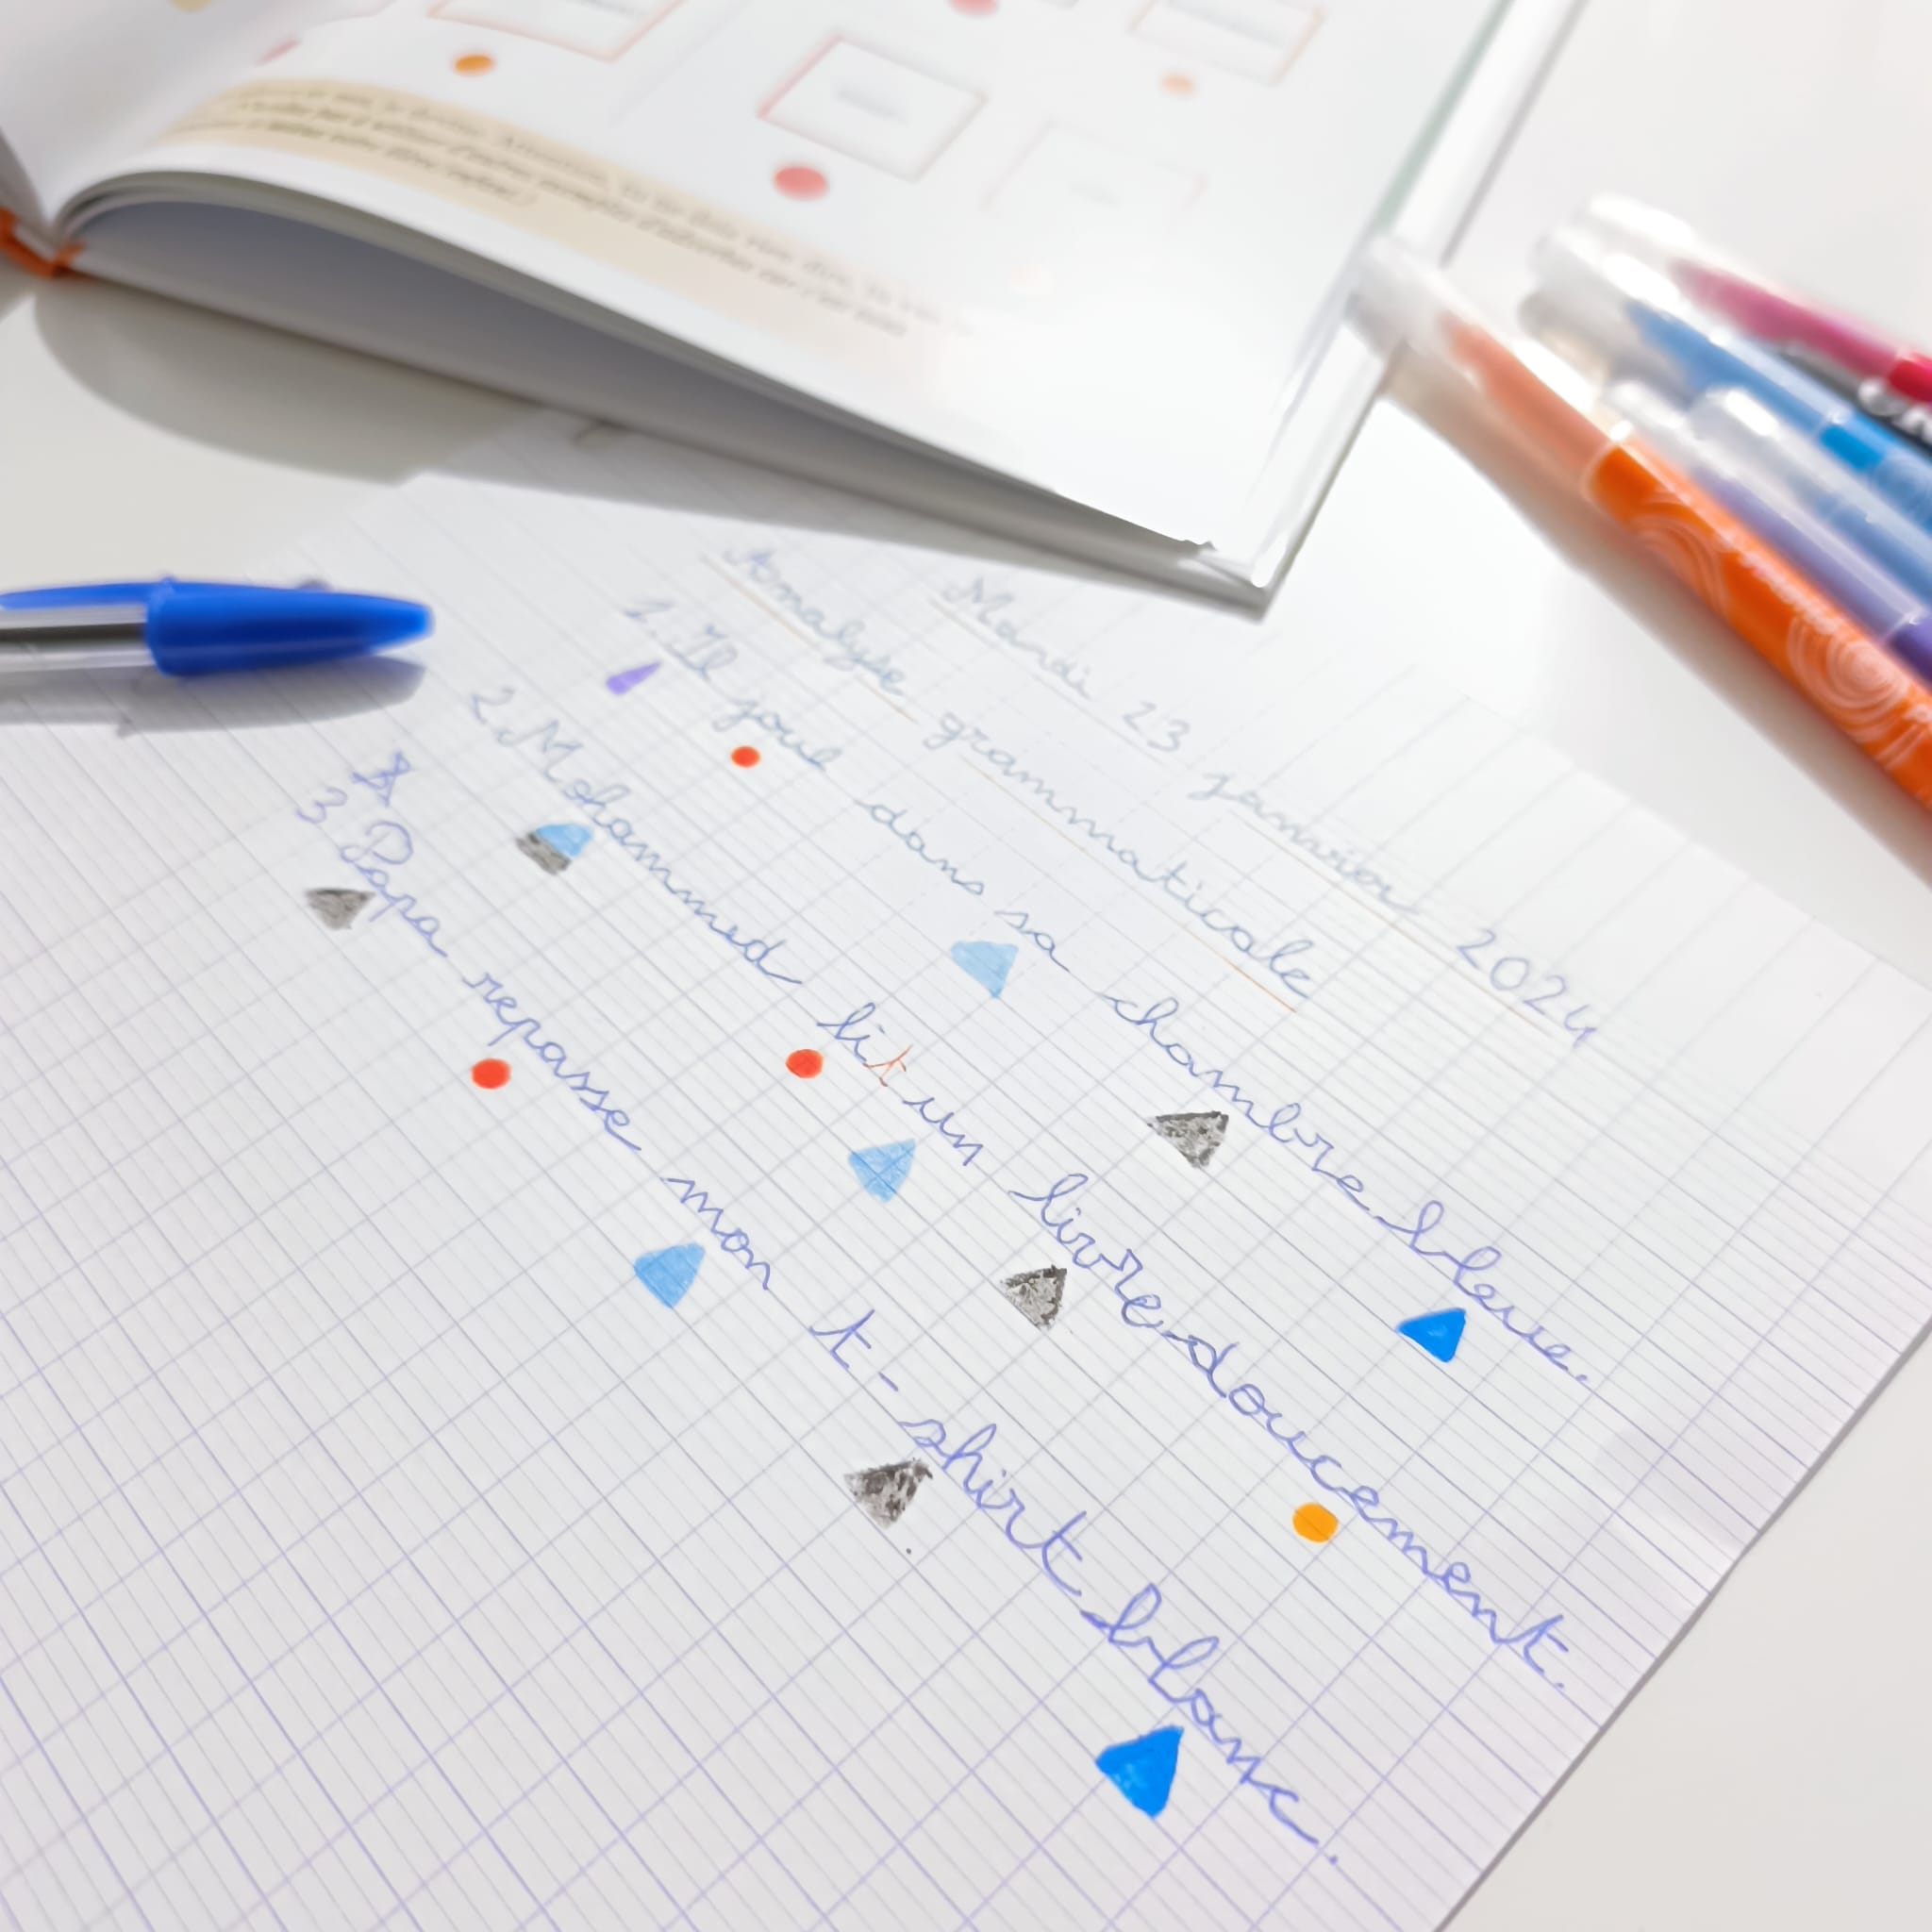 Mardi 23 janvier 2024
Analyse grammaticale
1. Il joue dans sa chambre bleue.
2. Mohammed lit un livre doucement.
3 Papa repasse mon t-shirt blanc.